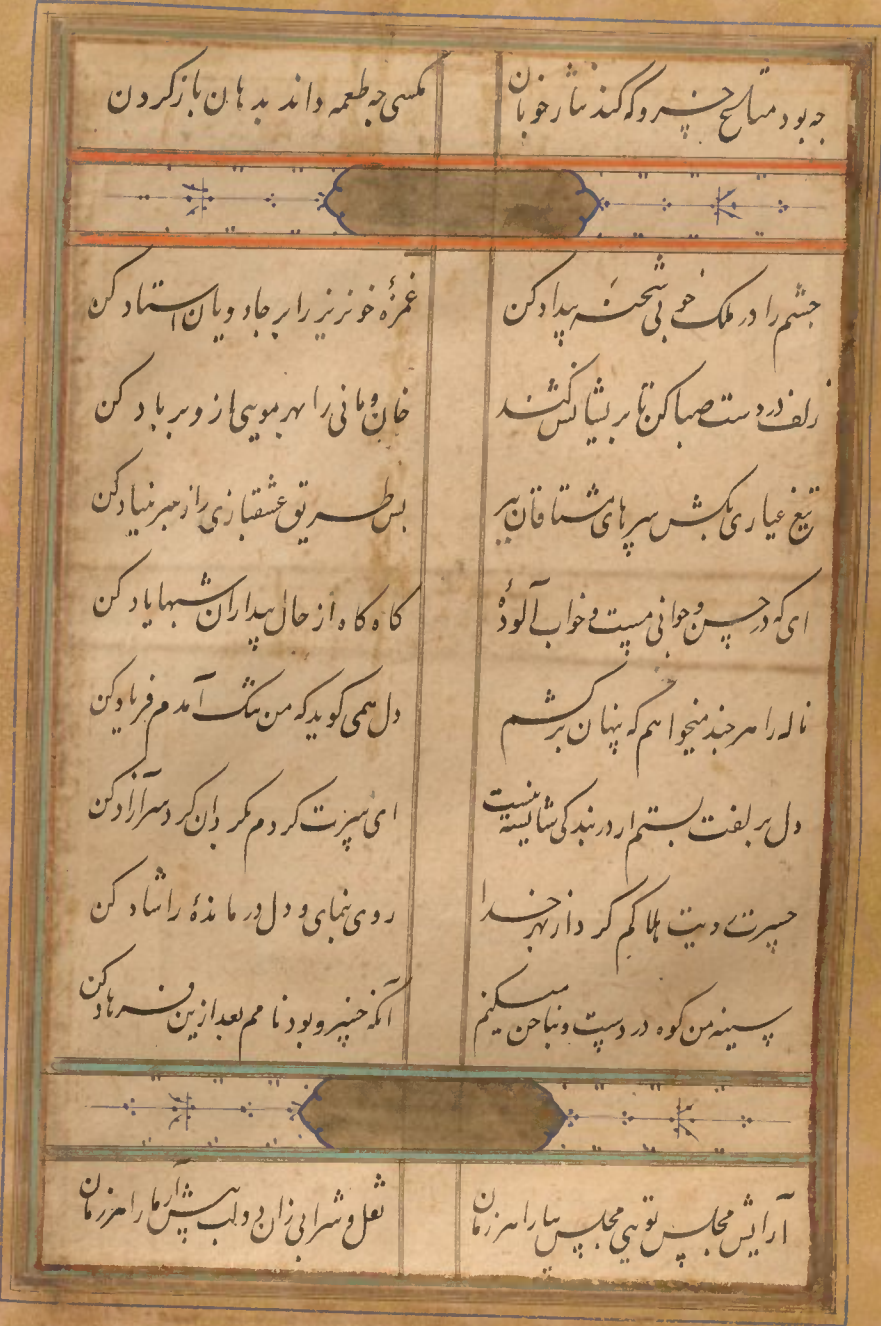 چه بود متاع خسرو که کند نثار خوبان مکسی چه طعمه داند بدهان باز کردن
چشم را در ملک خوبی شحنه بیداد کن غمزهٔ خونریز را بر جادویان استاد کن
زلف در دست صبا کن تا پریشانش کشند خان و مانی را بهر مویی ازو بر باد کن
تیغ عیاری بکش سرهای مشتاقان ببر بس طریق عشقبازی را ز سر بنیاد کن
ای که در حسن و جوانی مست و خواب آلودهٔ کاه کاه از حال بیداران شبها یاد کن
ناله را هر چند میخواهم که پنهان برکشم دل همی کوید که من تنک آمدم فریاد کن
دل بزلفت بستم ار در بندکی شایسته نیست ای سرت کردم مکردان کرد سر آزاد کن
حسرت رویت هلاکم کرد از بهر خدا روی بنمای و دل درماندهٔ را شاد کن
سینه من کوه دردست و بناخن میکنم آنکه خسرو بود نامم بعد ازین فرهاد کن
آرایش مجلس تویی مجلس بیارا هر زمان نقل و شرابی زان دو لب پیش آر ما را هر زمان